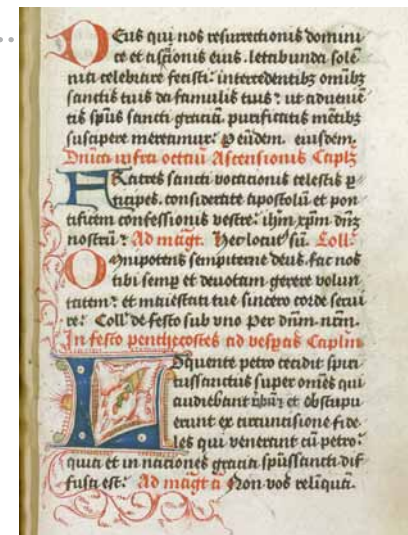 Deus qui nos resurrectionis domini
ce et asc̄sionis eius letabunda solē
nia celebrare fecisti: intercedentibꝫ om̄ibꝫ
sanctis tuis da famulis tuis: ut aduenīe
tis sp̄us sancti graciā. purificatis mētibꝫ
suscipere mereamur: P eūdem. eiusdem.
Dnīca infra octau̅ Ascensionis Capl̄ꝫ
FRatres sancti vocacionis celestis p̱
ticipes. considerate apostolū et pon
tificem confessionis vestre: ih̄m xp̄m dn̄ꝫ
nostrū: Ad mag̅t. Hec locut⁹ sū. Coll̄:
OMnipotens sempiterne deus. fac nos
tibi semp̱ et deuotam gerere volun
tatem: et maiestati tue sincero corde serui
re: Coll̄ de festo sub vno Per dn̄m. nr̄m.
In festo penthecostes ad vesp̱as Caplm̄
LOquente petro cecidit spiri
tussanctus super om̄es qui
audiebant et obstupu
erunt ex circuncisione fide
les qui venerant cū petro:
quia et in naciones gracia sp̄ussancti dif
fusa est: Ad mag̅t a Non vos relīquā.